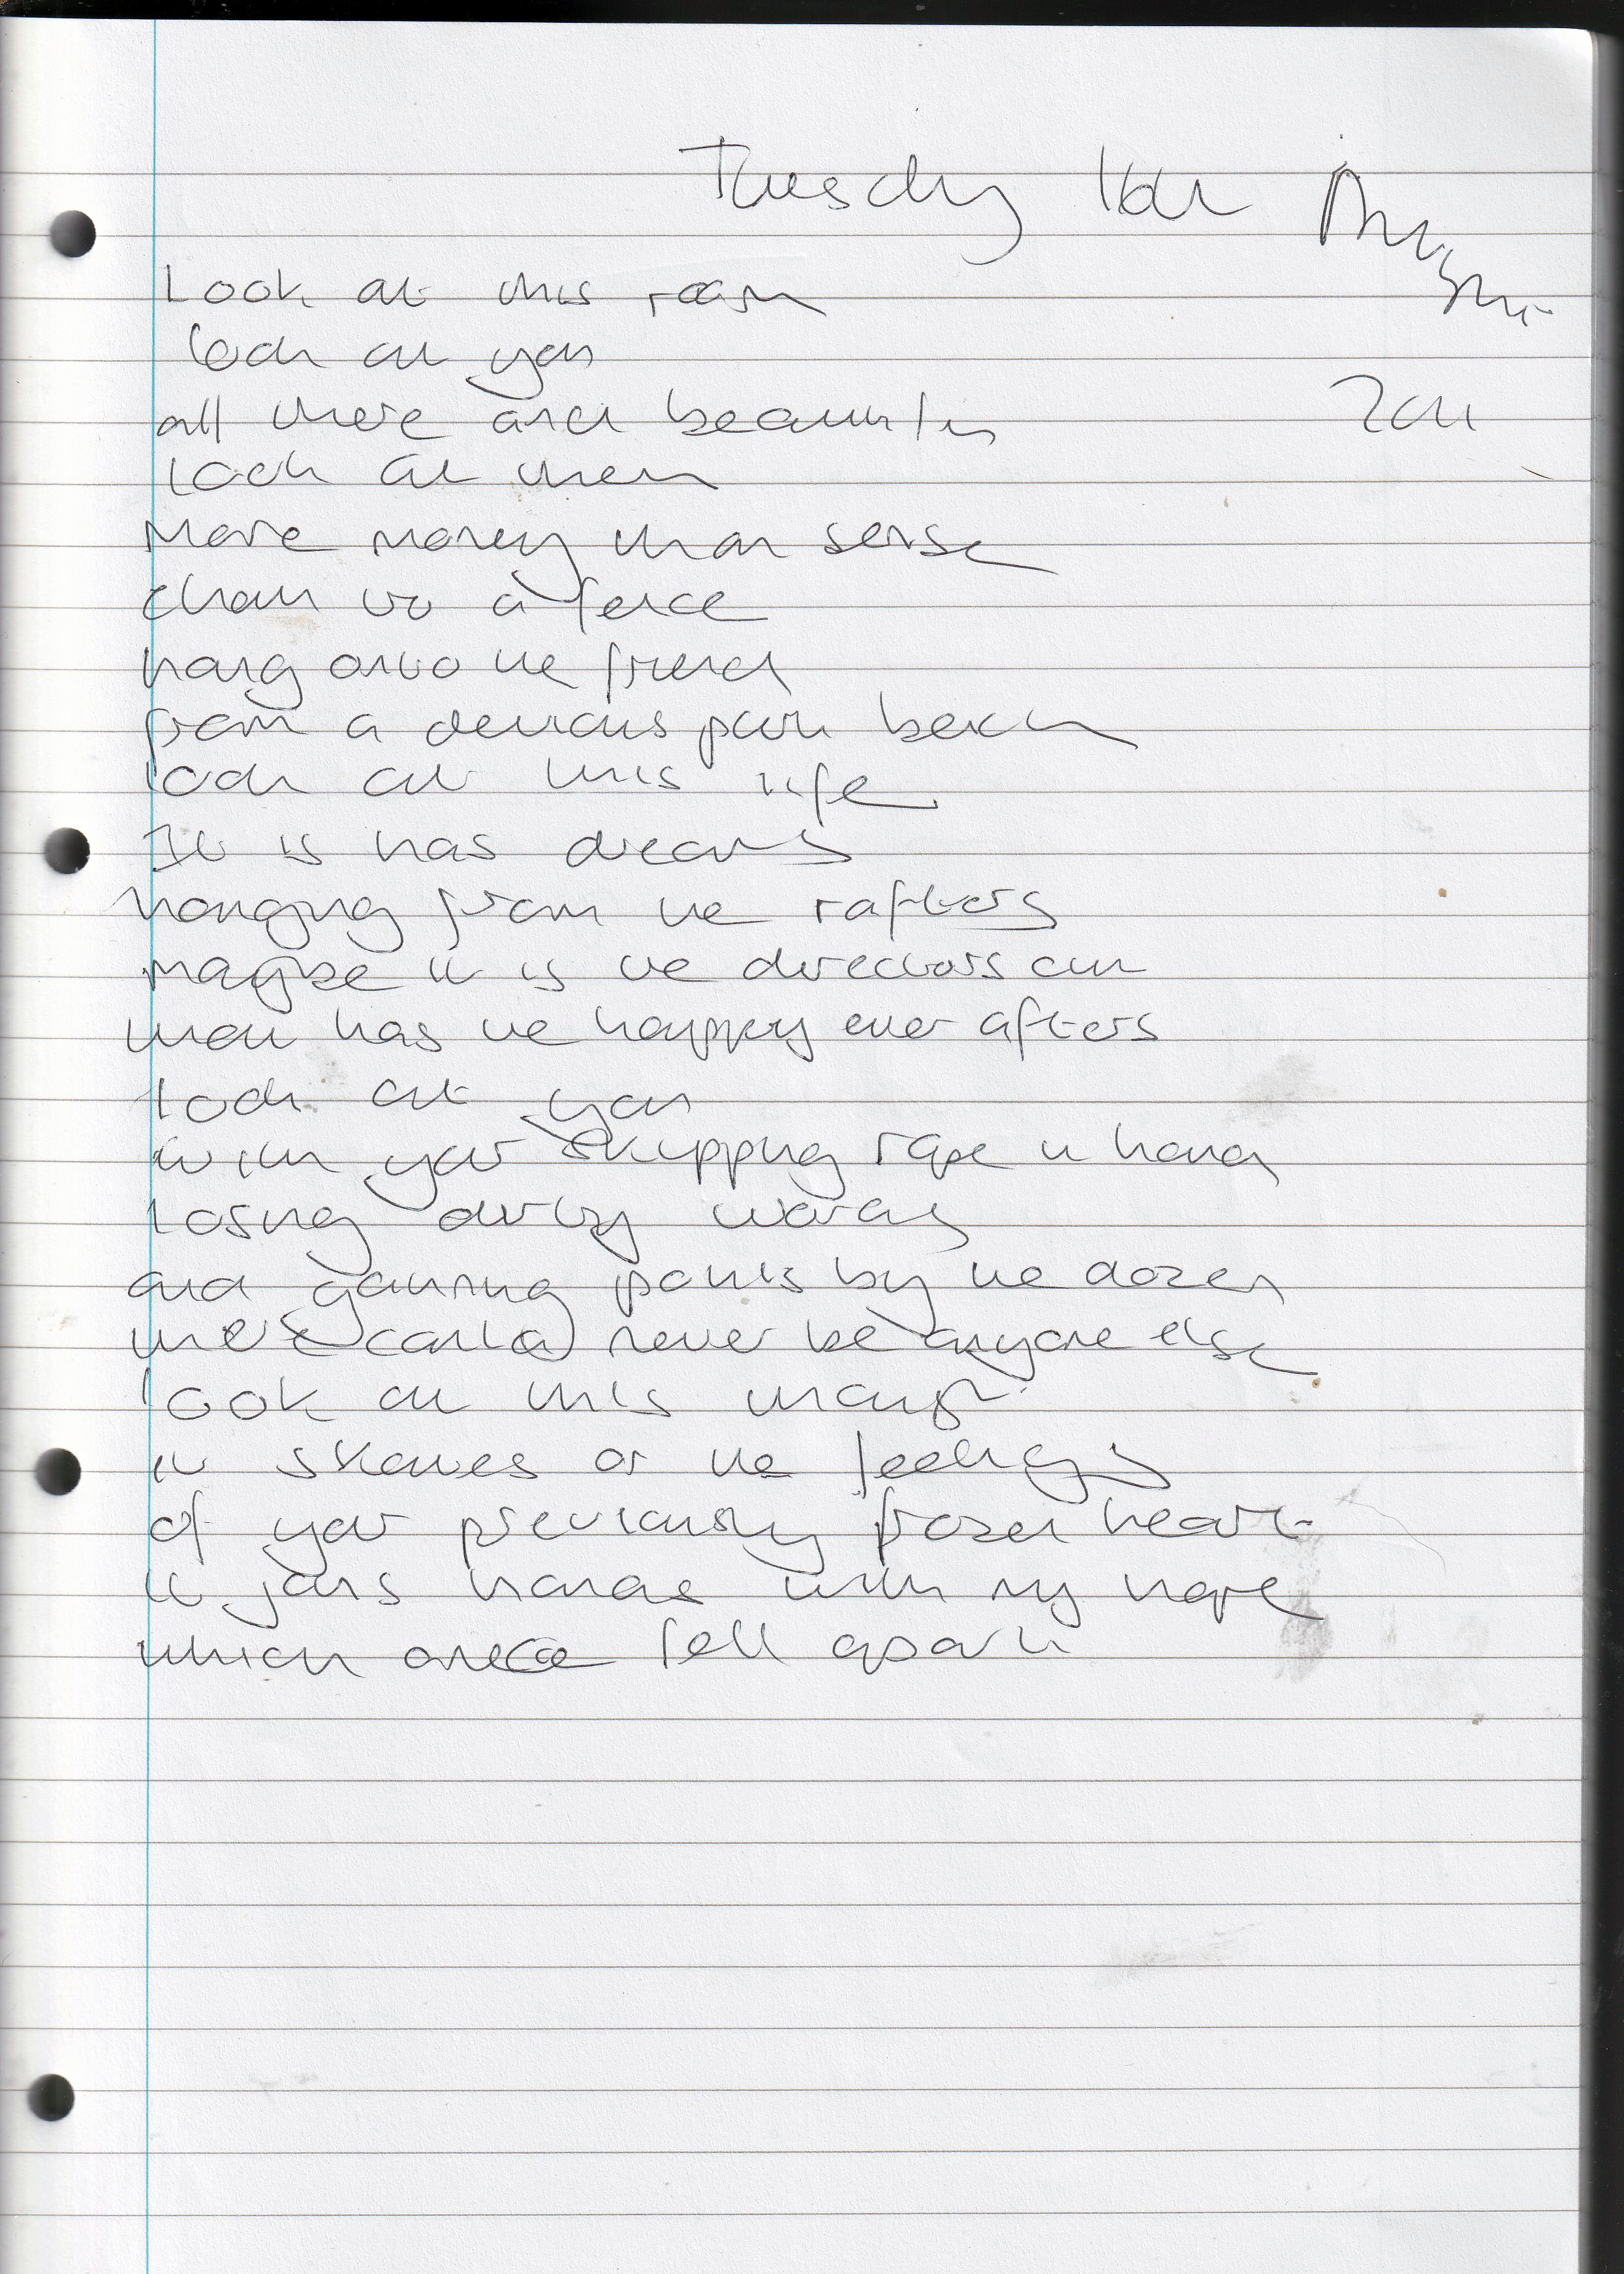 Tuesday 16th August
2011
Look at this room
look at you
all there and beautiful
look at them
More money than sense
chain to a fence
hang onto the friend
from a devious park bench
look at this life
It is has dreams
hanging from the rafters
maybe it is the directors cut
that has the happy ever afters
look at you
with your skipping rope in hand
losing dirty words
and gaining points by the dozen
there could never be anyone else
look at this thaught
it skates on the feelings
of your previously frozen heart
it joins hands with my hope
which once fell apart